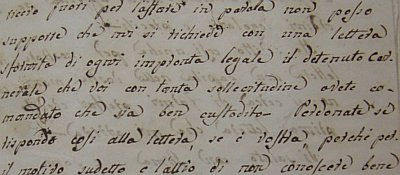 fuori per l'affare in parola non posso
supporre che mi si richiede con una lettera
sfornita di ogni impronta legale il detenuto Car-
nevale che voi con tanta sollecitudine avete co-
mandato che sia ben custodito - Perdonate se
rispondo così alla lettera, se è vostra, perchè per
il motivo sudetto e l'altro di non conoscere bene